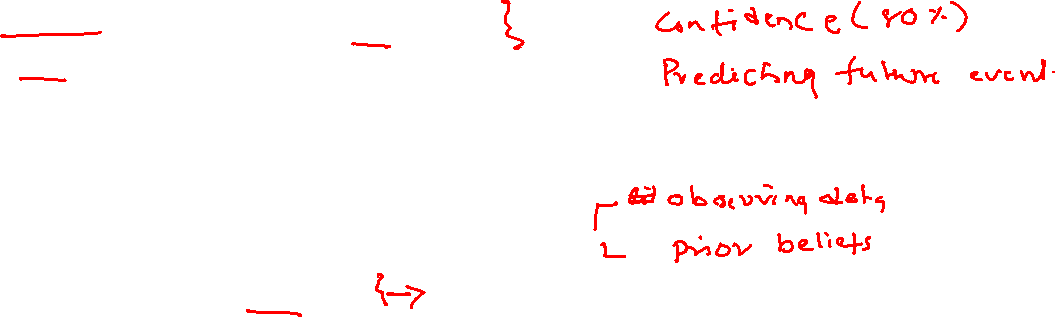 Confidence (80%)
Predicting future event.
observing data
prior beliefs